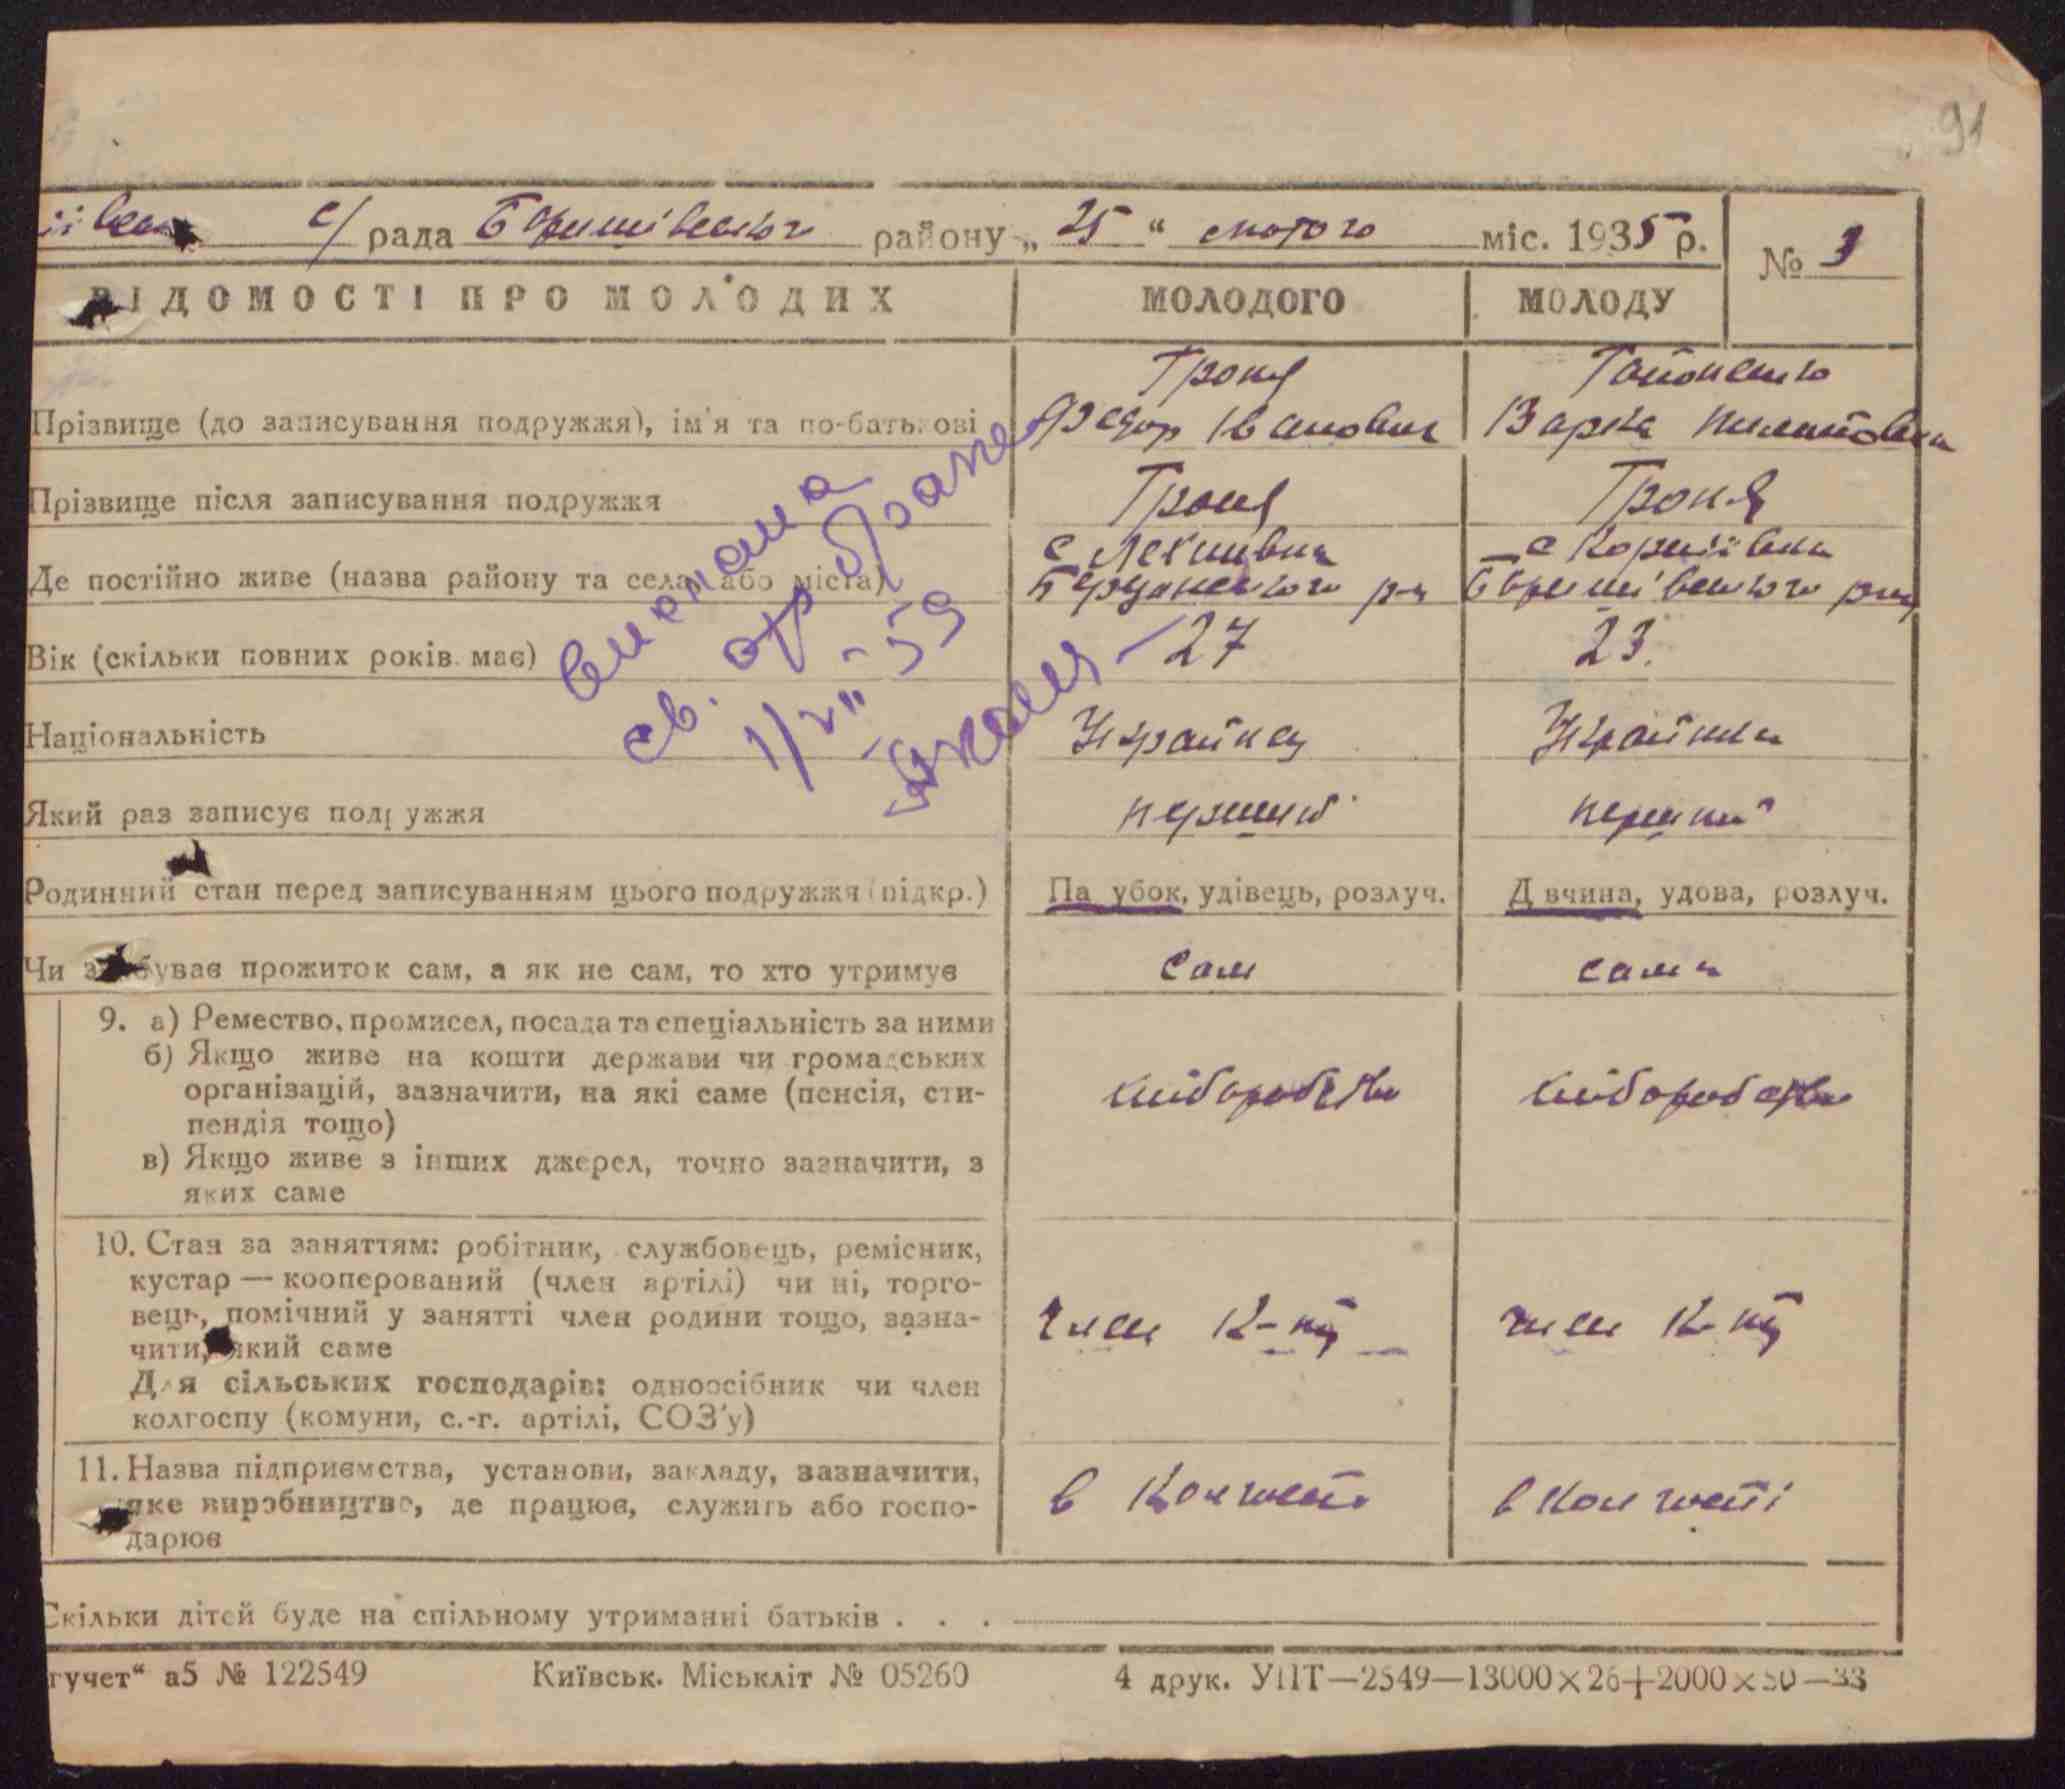 91
с/ рада Баришівського району „ 25 “ лютого міс. 1935 р.
№ 3
ВІДОМОСТІ ПРО МОЛОДИХ МОЛОДОГО МОЛОДУ
Троня
Прізвище (до записування подружжя), ім'я та по-батькові Федор Іванович Варка Пилиповна
Прізвище після записування подружжя Троня Троня
с с Корніївка
Де постійно живе (назва району та села або міста) р-н Баришівського р-ну
Вік (скільки повних років має) 27 23.
Національність Українец Українка
Який раз записує подружжя перший перший
Родинний стан перед записуванням цього подружжя (підкр.) Па убок, удівець, розлуч. Д вчина, удова, розлуч.
Чи здобуває прожиток сам, а як не сам, то хто утримує сам сама
9. а) Ремество, промисел, посада та спеціальність за ними
б) Якщо живе на кошти держави чи громадських
організацій, зазначити, на які саме (пенсія, сти-
пендія тощо)
в) Якщо живе з інших джерел, точно зазначити, з
яких саме
хліборобство хліборобство
10. Стан за заняттям: робітник, службовець, ремісник,
кустар — кооперований (член артілі) чи ні, торго-
вець, помічний у занятті член родини тощо, зазна-
чити, який саме
Для сільських господарів: одноосібник чи член
колгоспу (комуни, с.-г. артілі, СОЗ'у)
член к-пу член к-пу
11. Назва підприємства, установи, закладу, зазначити,
яке виробництво, де працює, служить або госпо-
дарює
в колгоспі в колгоспі
Скільки дітей буде на спільному утриманні батьків . . .
гучет“ а5 № 122549 Київськ. Міськліт № 05260 4 друк. УПТ—2549—13000×26+2000×50—33
выслана
св. обр